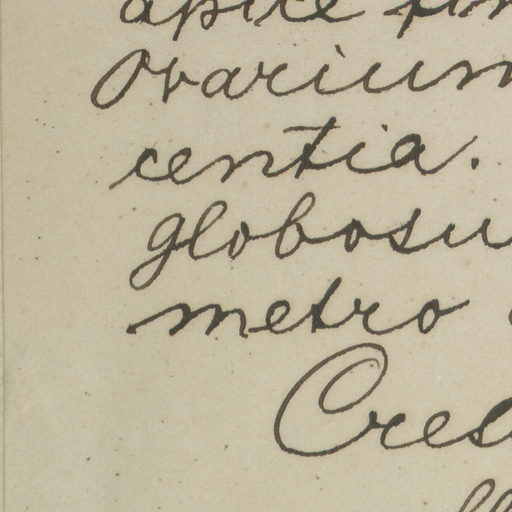 apice
Ovarium
centia.
globosu
metro
Cres